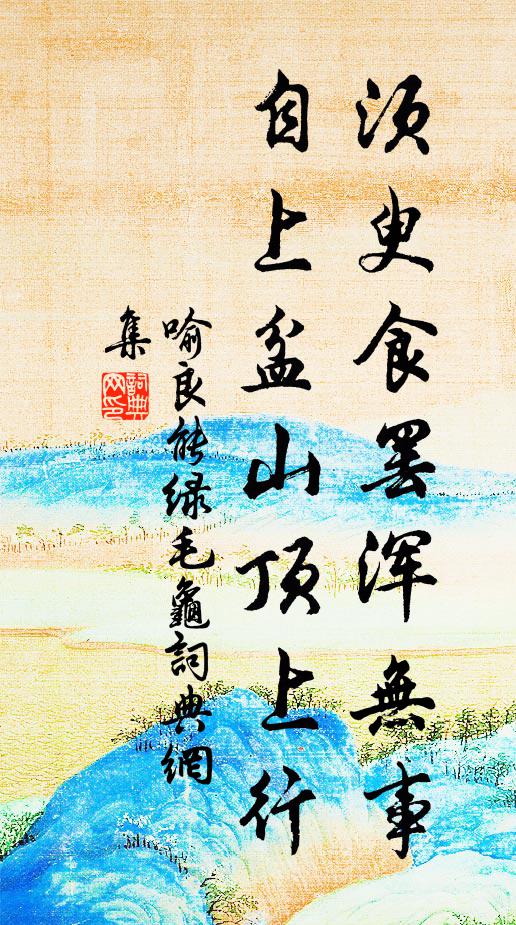 須臾食罢浑無事
自上盆山顶上行
喻良能绿毛龜詞典網
集
詞典
网印